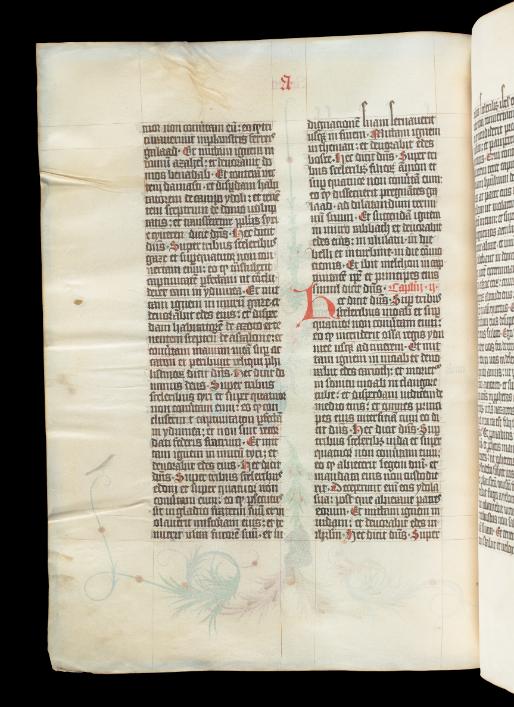 A
mos non conūtam eū: eo ꝙ tri
turauerint in plaustris ferreis
galaad. Et mittam ignem in
domū azahel: et deuorabit do
mos benadab. Et conterā ve
ctem damasci: et disꝑdam habi
tatorem de campo ydoli: et tene
tem sceptrum de domo uoluptͣ
tis: et transferetur pplus syri
e cyrenen dicit dn̄s. Hec dicit
dn̄s. Super tribus sceleribus
gaze et super quatuor non con
uertam eum: eo ꝙ transtulerit
captiuitatē ꝑfectam ut cōclu
deret eam in ydumea. Et mit
tam ignem in murū gaze: et
deuorabit edes eius: et dispeꝛ
dam habitatorē de azoto: et te
nentem sceptrū de ascalone: et
conuertam manum meā suꝑ ac
caron: et peribunt reliqui phi
listinoꝝ dicit dn̄s. Hec dicit do
minus deus. Super tribus
sceleribus tyri et super quatuor
non conūtam eum: eo ꝙ con
cluserīt captiuitatē ꝑfectā
in ydumea: et non sint recor
dati federis fratrum. Et mit
tam ignem in murū tyri: et
deuorabit edes eius. Hec dicit
dn̄s. Super tribus sceleribus
edom et super quatuor non
conūtam eum: eo ꝙ ꝑsecutus
sit in gladio fratrem suū: et ui
olauerit misericordiam eius: et te
nuerit ultra furorē suū: et in
dignationē suam seruauerit
usqꝫ in finem. Mittam ignem
in theman: et deuorabit edes
bosre. Hec dicit dn̄s. Super tri
bus sceleribꝫ filioꝝ amon et
suꝑ quatuor non conūtam eum:
eo ꝙ dissecuerit pregnātes ga
laad: ad dilatandū termi
nū suum. Et succendā ignem
in muro rabbath et deuorabit
edes eius: in ululatu in die
belli et in turbine in die cōmo
tionis. Et ibit melchom in cap
tiuitatē ip̄e et principes eius
simul dicit dn̄s. Capitlm .ii.
Hec dicit dn̄s. Sup tribꝫ
sceleribus moab et suꝑ
quatuor non conūtam eum:
eo ꝙ incenderit ossa regis ydu
mee usqꝫ ad cinerem. Et mit
tam ignem in moab et deuo
rabit edes carioth: et moriet͛
in sonitu moab in clangore
tube: et disperdam iudicem de
medio eius: et omnes princi
pes eius interficiā cum eo di
cit dn̄s. Hec dicit dn̄s. Super
tribus sceleribꝫ iuda et super
quatuor non conūtam eum:
eo ꝙ abiecerit legem dn̄i. et
mandata eius non custodie
rit. Deceperunt eni eos ydola
sua: post que abierant patres
eorum. Et mittam ignem in
iudam: et deuorabit edes ie
rl̄m. Hec dicit dn̄s. Super